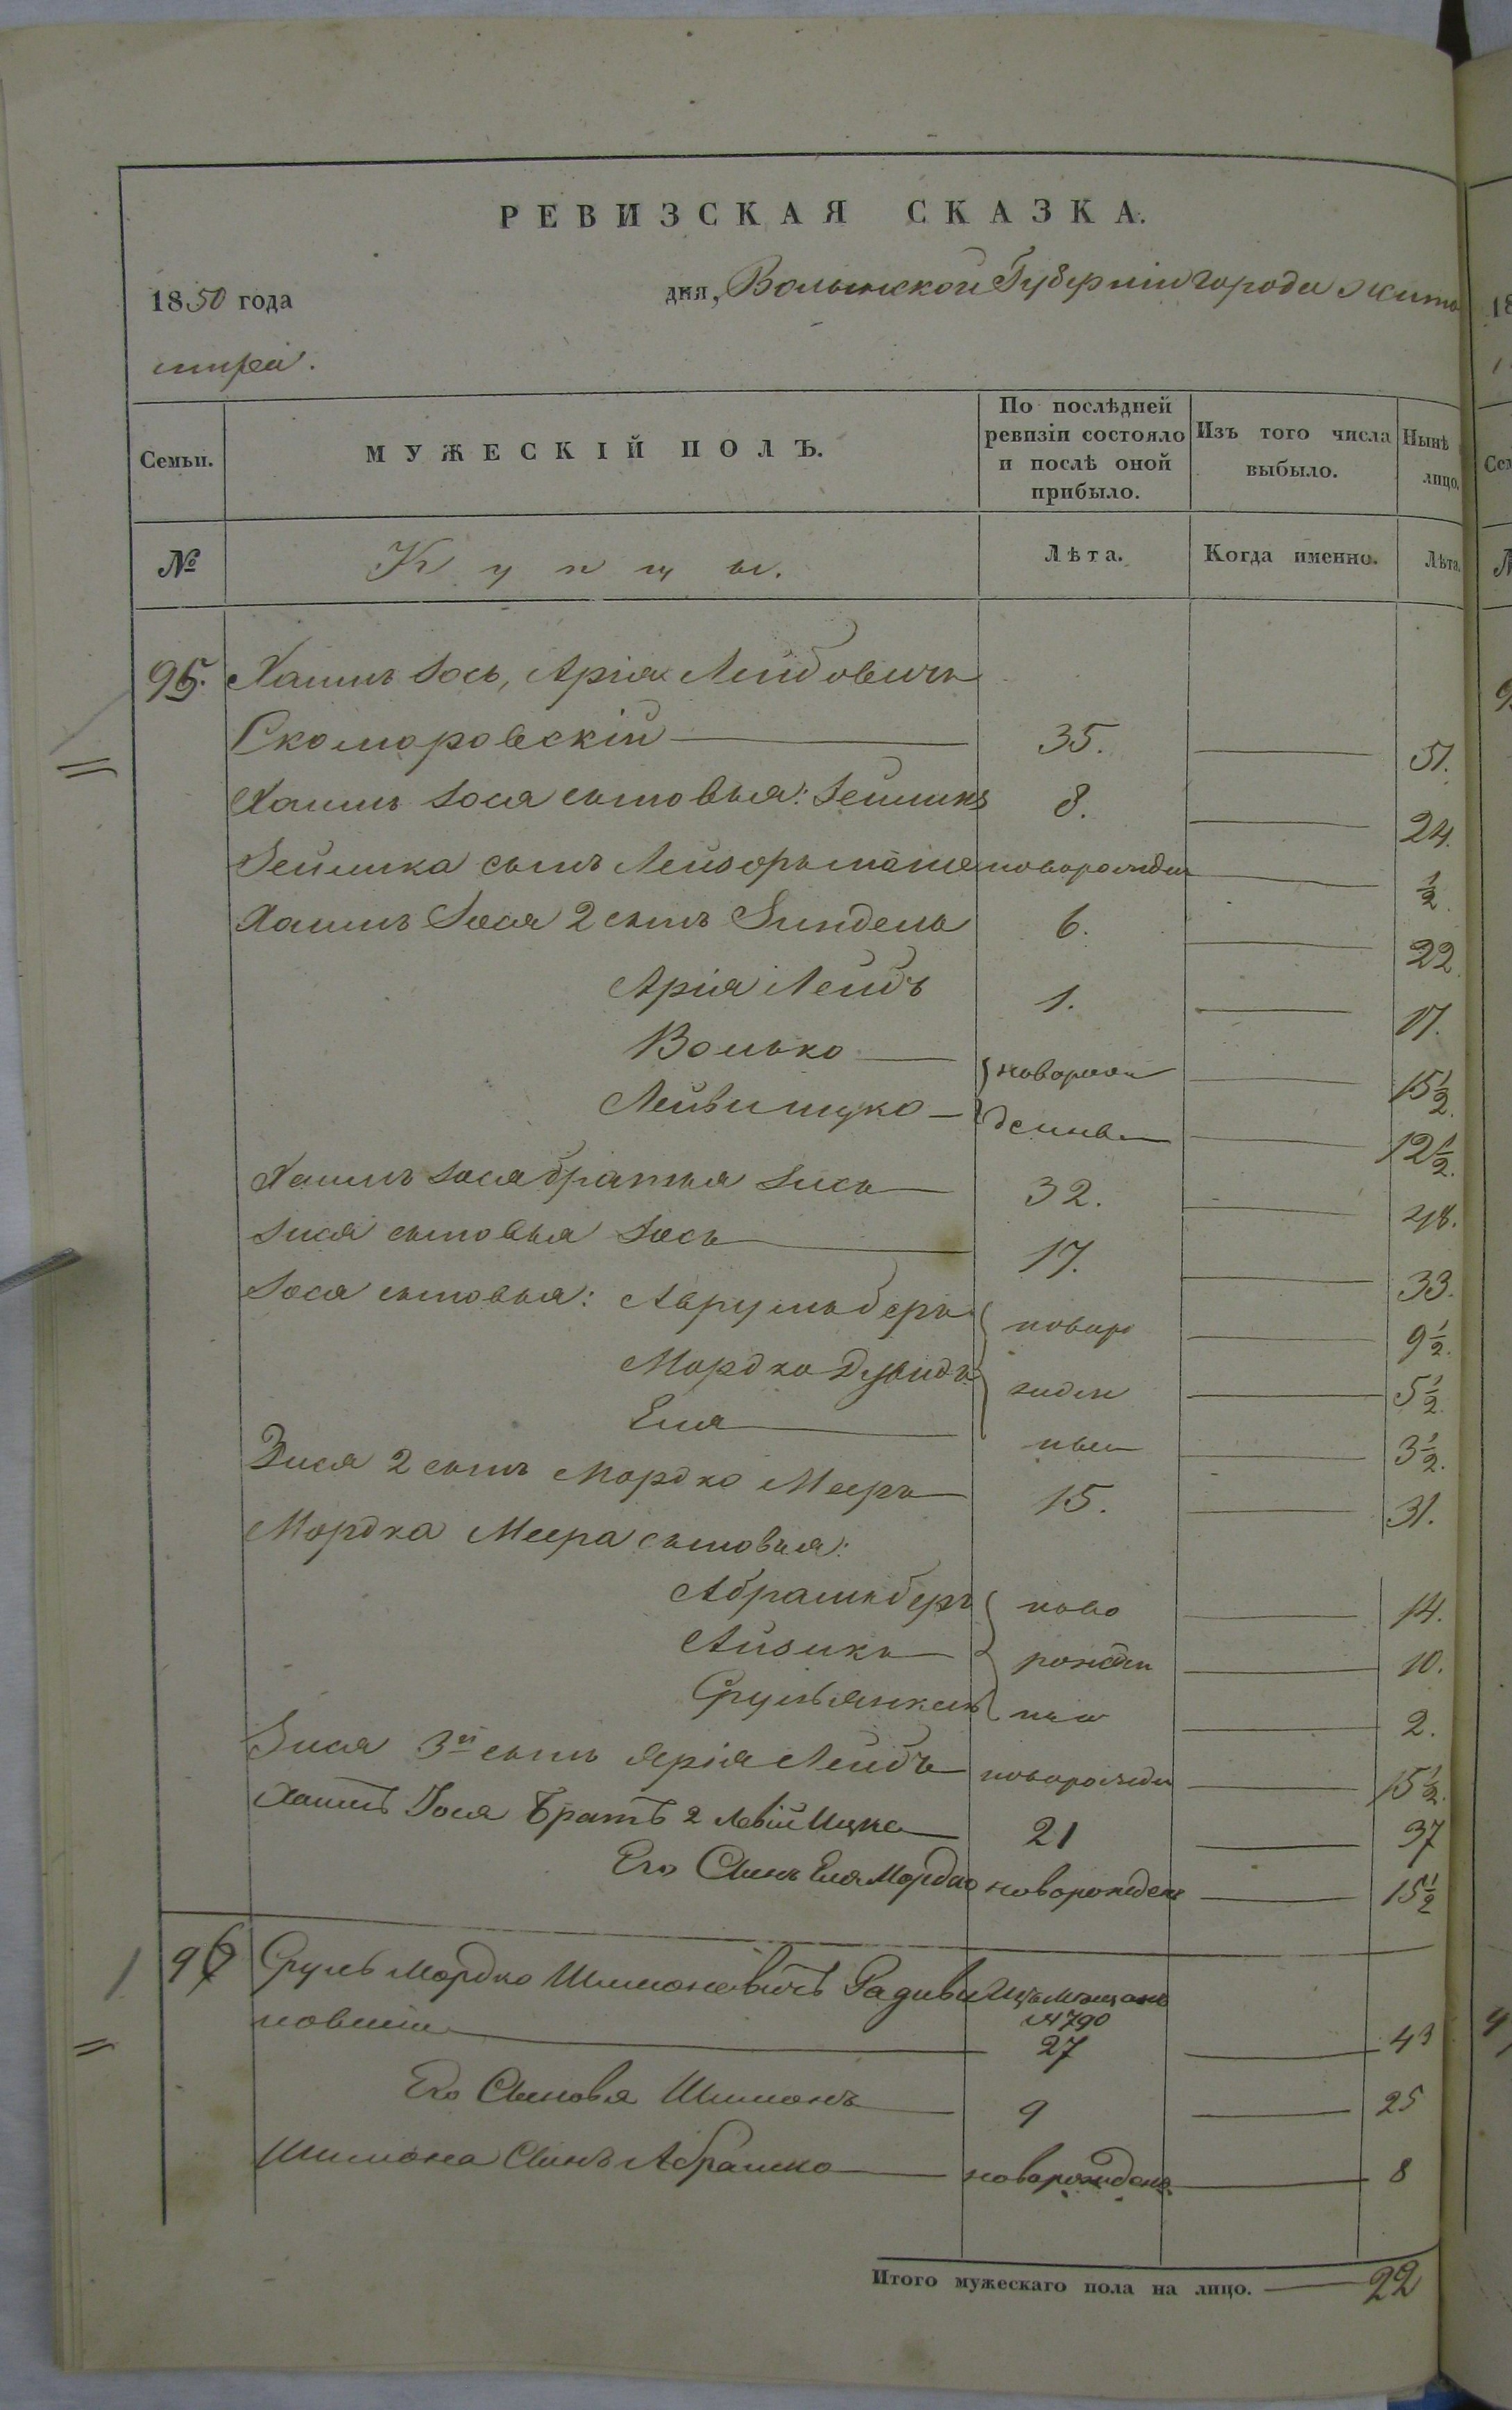 РЕВИЗСКАЯ СКАЗКА.
1850 года дня, Волынской Губерніи города Жито
мира.
Семьи. МУЖЕСКІЙ ПОЛЪ. По послѣдней ревизіи состояло и послѣ оной прибыло. Изъ того числа выбыло. Нынѣ лицо.
№ Купцы. Лѣта. Когда именно. Лѣта.
95. Хаимъ Іось, Арія Лейбовичъ
Скоморовскій 35. 51.
Хаимъ Іося сыновья: Зейликъ 8. 24.
Зейлика сынъ Лейзоръ новорожден ½
Хаимъ Іося 2 сынъ Зиндель 6. 22.
Арія Лейбъ 1. 17.
Волько новорож 15½.
Лейви ицко денные 12½.
Хаимъ Іося братья Зись 32. 48.
Зися сыновья Іось 17. 33.
Іося сыновья: Аврумъ беръ новоро 9½.
Мордко Дувидъ жден 5½.
Еля ные 3½.
Зися 2 сынъ Мордко Мееръ 15. 31.
Мордка Меера сыновья:
Абрамъ беръ ново 14.
Айзикъ рожден 10.
Сруль Янкель ные 2.
Зися 3й сынъ Арія Лейбъ новорожден 15½.
Хаимъ Іося Братъ 2 Левій Ицко 21 37
Его Сынъ Еля Мордко новорожден 15½
96 Сруль Мордко Шимоновичъ Радиви Изъ Мещанъ
№ 790
ловскій 27 43
Его Сыновья Шимонъ 9 25
Шимона Сынъ Абрамко новорожден. 8
Итого мужескаго пола на лицо. 22